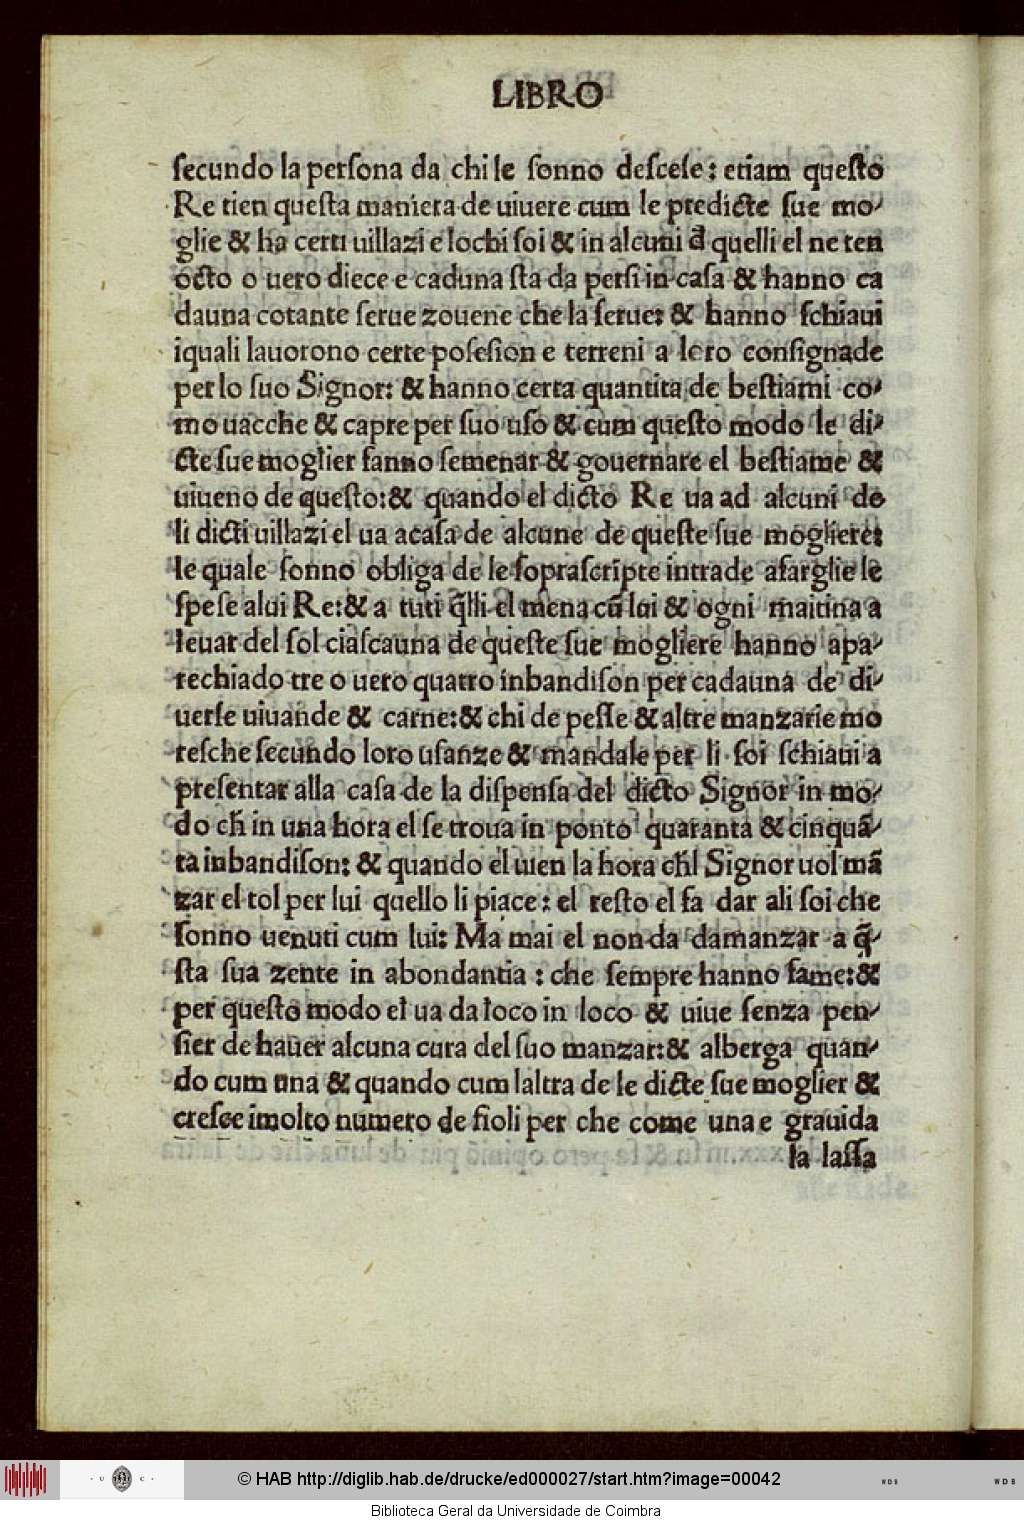 LIBRO
ſecundo la perſona da chi le ſonno deſceſe: etiam queſto
Re tien queſta maniera de uiuere cum le predicte ſue mo-
glie & ha certi uillazi e lochi ſoi & in alcuni đ quelli el ne ten
octo o uero diece e caduna ſta da perſi in caſa & hanno ca
dauna cotante ſerue zouene che la ſerue: & hanno ſchiaui
iquali lauorono certe poſeſion e terreni a loro conſignade
per lo ſuo Signor: & hanno certa quantita de beſtiami co-
mo uacche & capre per ſuo uſo & cum queſto modo le di-
cte ſue moglier fanno ſemenar & gouernare el beſtiame &
uiueno de queſto: & quando el dicto Re ua ad alcuni de
li dicti uillazi el ua acaſa de alcune de queſte ſue mogliere:
le quale ſonno obliga de le ſopraſcripte intrade afarglie le
ſpeſe alui Re: & a tuti q̃lli el mena cũ lui & ogni maitina a
leuar del ſol ciaſcauna de queſte ſue mogliere hanno apa-
rechiado tre o uero quatro inbandiſon per cadauna de di-
uerſe uiuande & carne: & chi de peſſe & altre manzarie mo
reſche ſecundo loro uſanze & mandale per li ſoi ſchiaui a
preſentar alla caſa de la diſpenſa del dicto Signor in mo-
do ch̃ in una hora el ſe troua in ponto quaranta & cinquã-
ta inbandiſon: & quando el uien la hora ch̃l Signor uol mã
zar el tol per lui quello li piace: el reſto el fa dar ali ſoi che
ſonno uenuti cum lui: Ma mai el non da damanzar a q̃-
ſta ſua zente in abondantia: che ſempre hanno fame: &
per queſto modo el ua da loco in loco & uiue ſenza pen-
ſier de hauer alcuna cura del ſuo manzar: & alberga quan-
do cum una & quando cum laltra de le dicte ſue moglier &
creſce imolto numero de fioli per che come una e grauida
la laſſa
© HAB http://diglib.hab.de/drucke/ed000027/start.htm?image=00042
· U C ·
WDB
WDB
Biblioteca Geral da Universidade de Coimbra